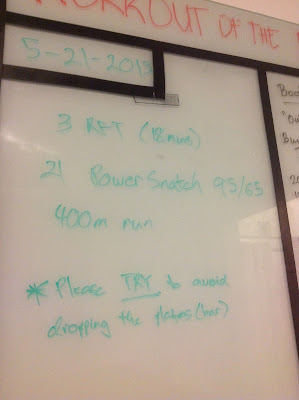 WORKOUT OF THE
5-21-2013
3 RFT (18 mins)
21 Power Snatch 95/65
400m run
* Please TRY to avoid
dropping the plates (bar)